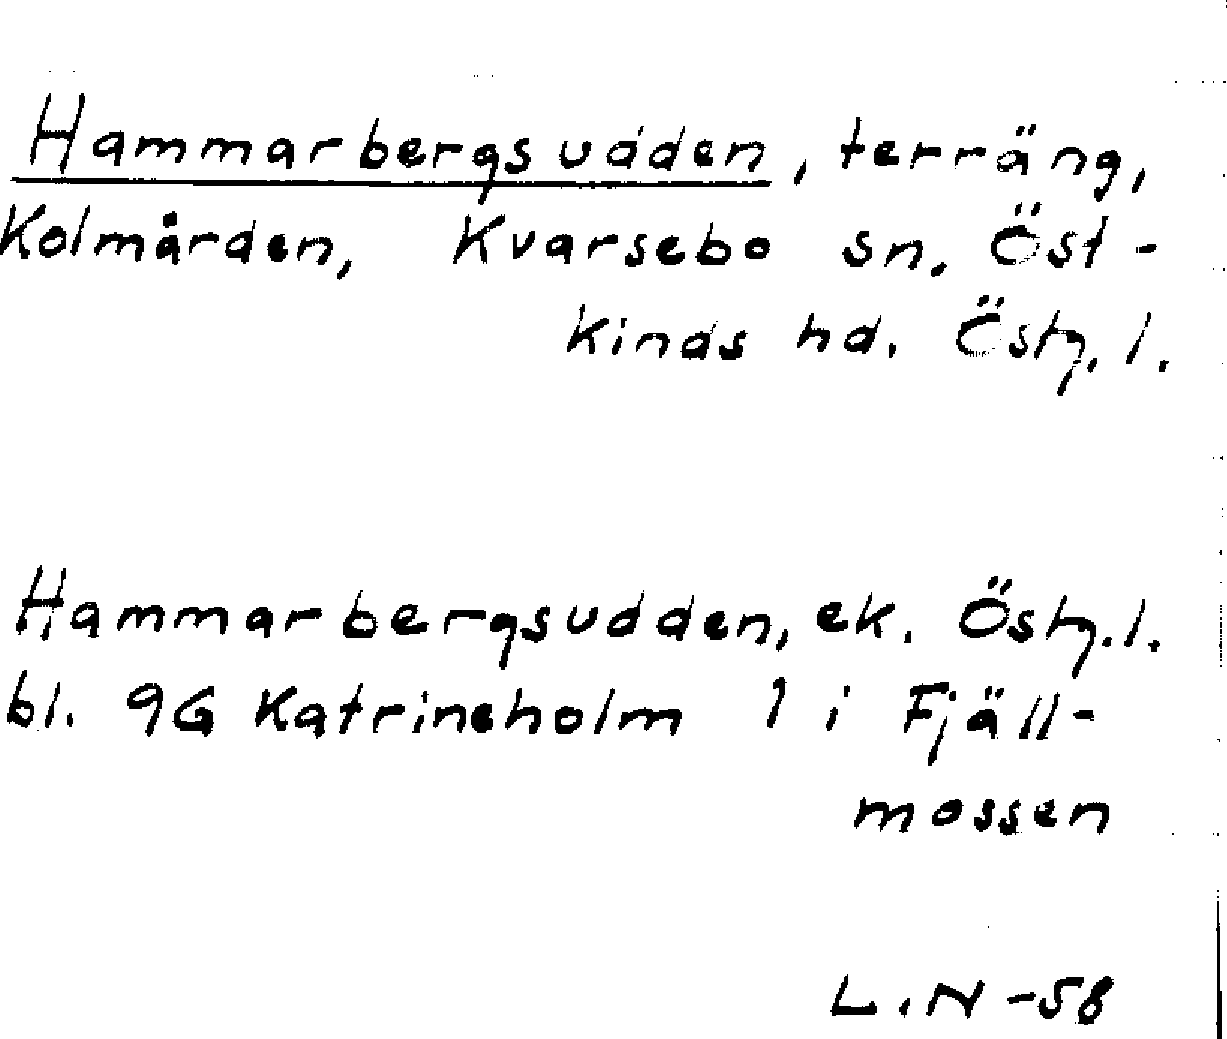 Hammarbergsudden, terräng,
Kolmården, Kvarsebo sn. Öst-
kinds hd. Östg. l.
Hammarbergsudden, ek. Östg. l.
bl. 9G Katrineholm 1 i Fjäll-
mossen
L.N -58